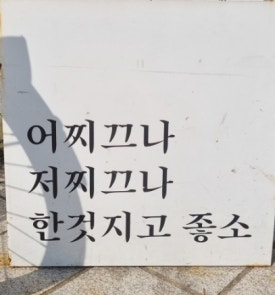 어찌끄나
저찌끄나
한것지고 좋소